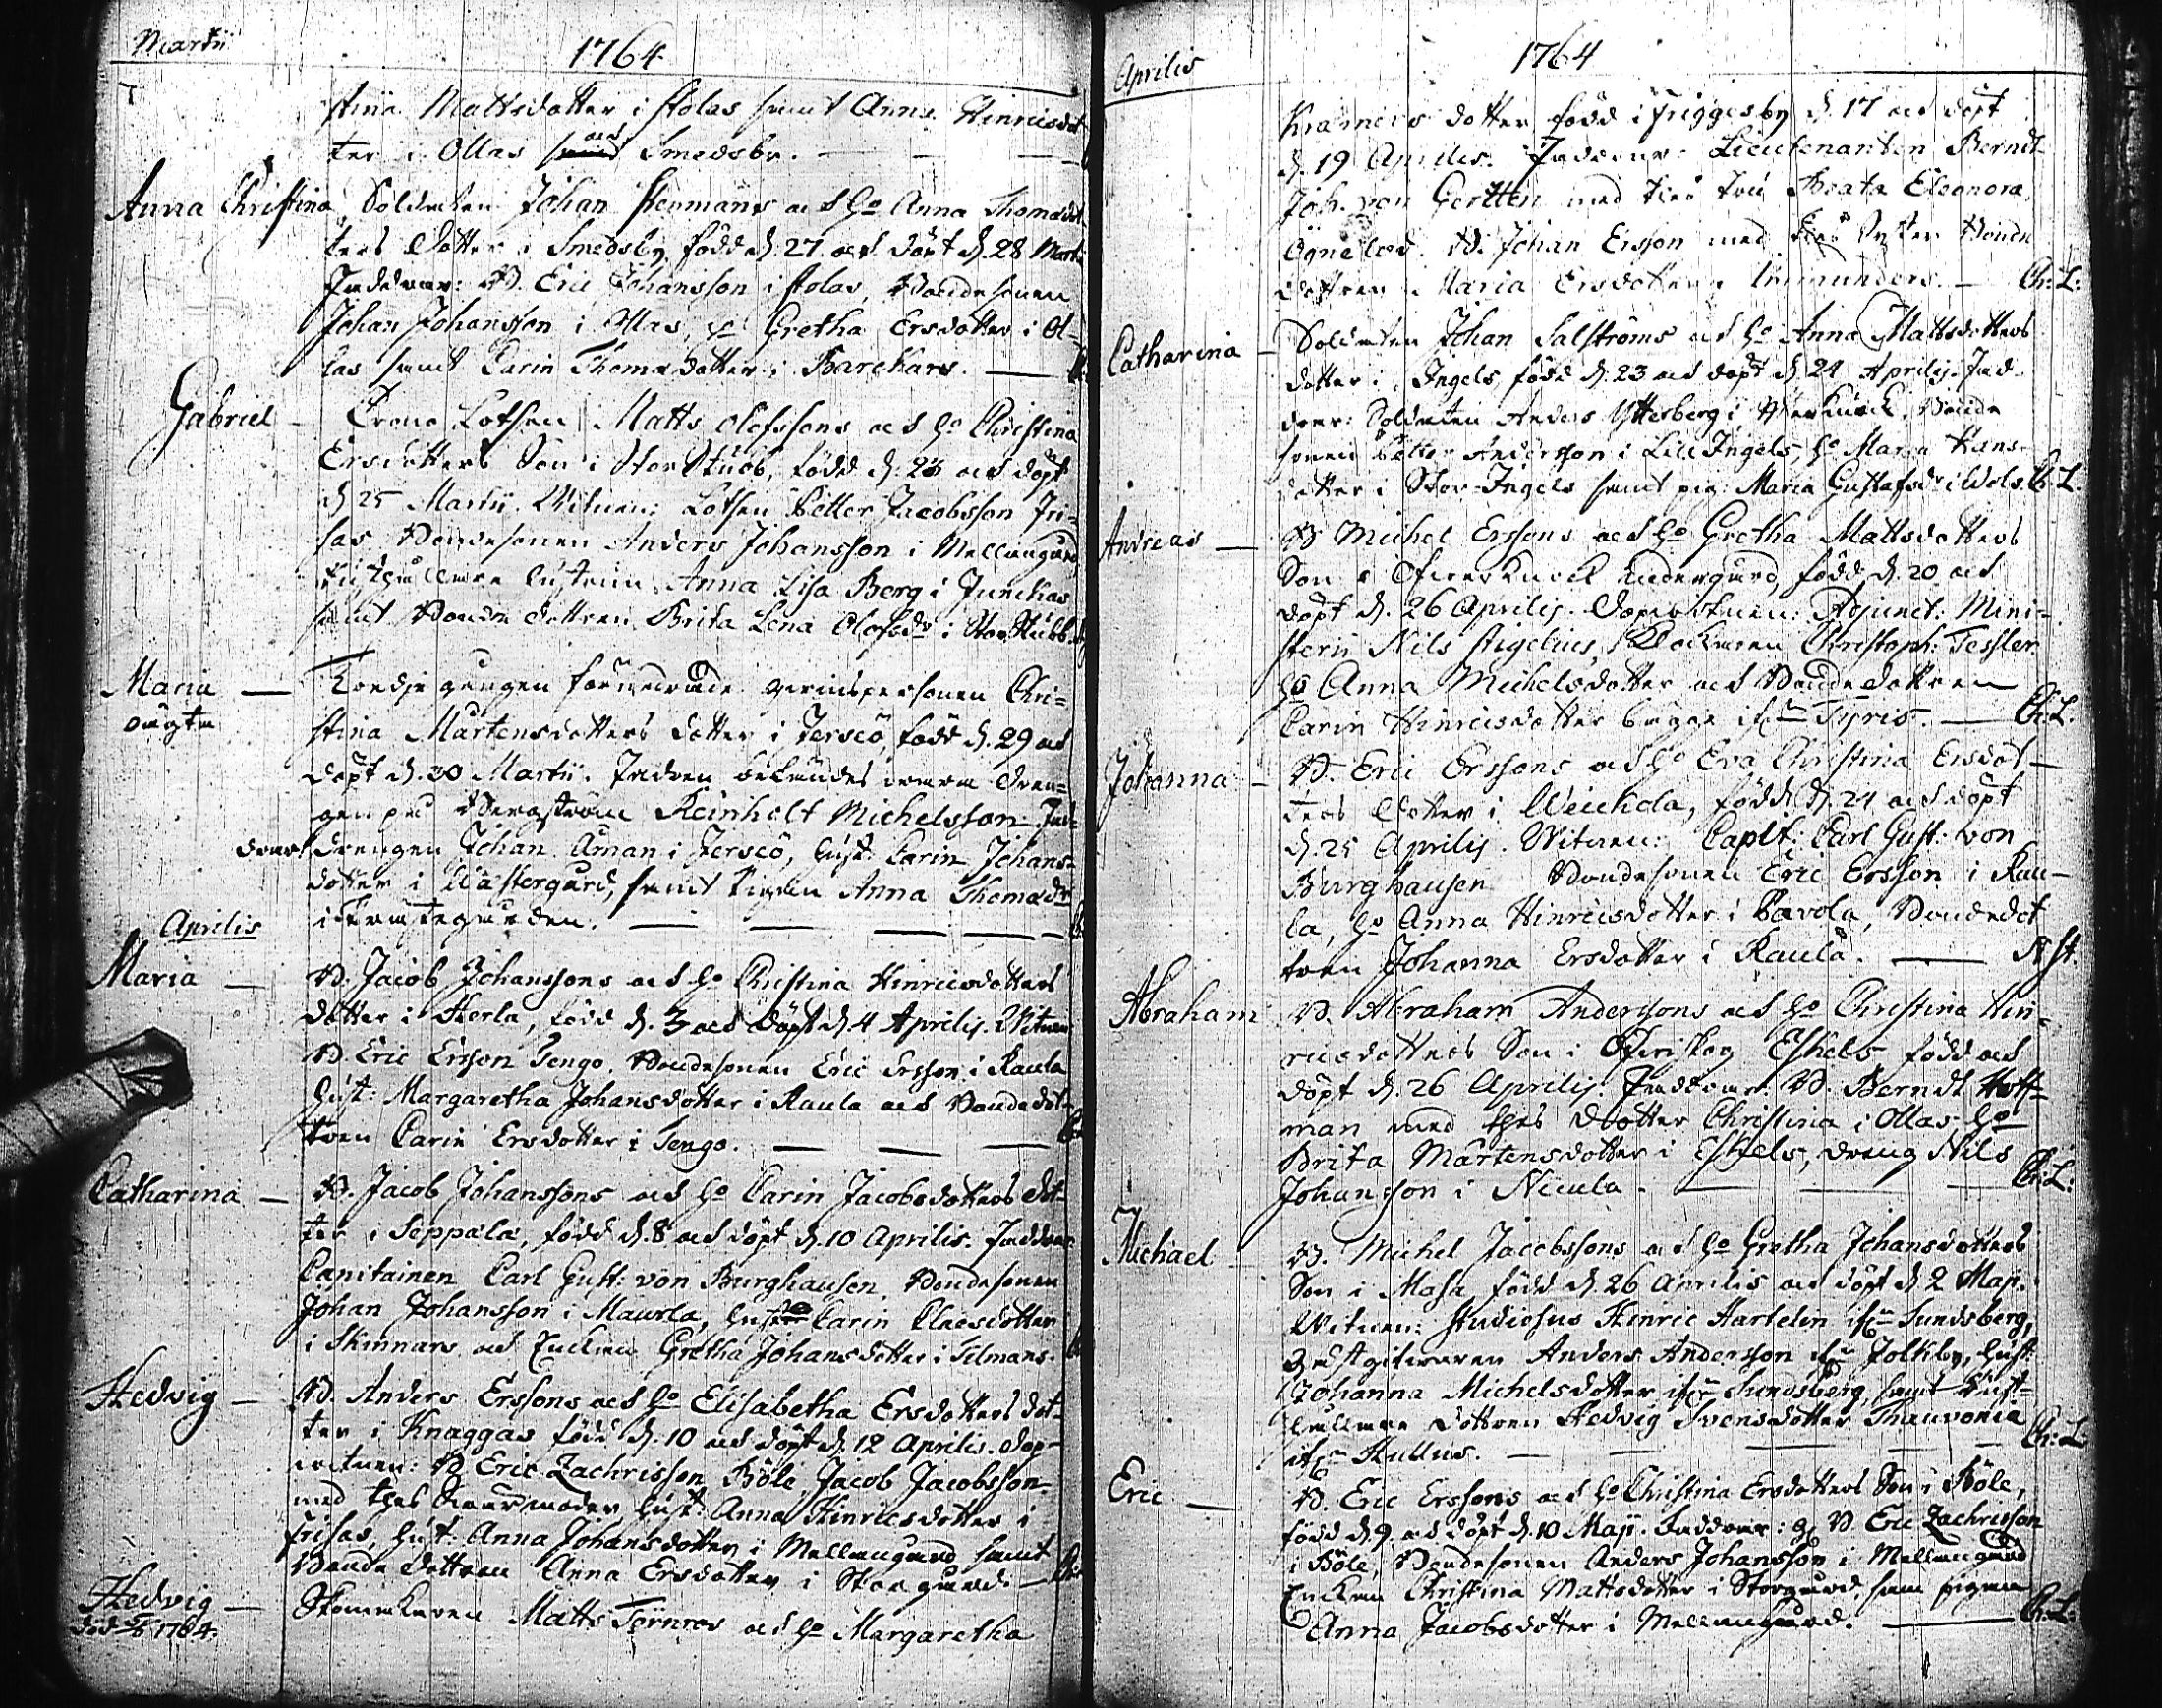 Martii
1764
stina Mattsdotter i stolas samt Anna Hinricsdot
ter i Ollas och Smedsby.
Anna Christina Soldaten Johan Stenmans och ho Anna Thomædot
ters dotter i Smedsby, född d. 27. och döpt d. 28 Martii
Faddrar: B. Eric Johansson i stolas, Bondesonen
Johan Johansson i Ollas, ho Gretha Ersdotter i Ol-
las samt Carin Thomædotter i Barckars.
Gabriel Crono Lotsen Matts Olofssons och ho Christina
Ersdotters Son i StorStubb, född d. 23 och döpt
d 25 Martii. Witnen: Lotsen Petter Jacobsson Fri-
sas Bondesonen Anders Johansson i Mellangård
hustrun Anna Lisa Berg i Junckas
samt Bonde dottren Brita Lena Olofsdr i StorStubb.
Maria Tredje gången förmedrade qvinspersonen Chri-
oägta
stina Mårtensdotters dotter i Jersö, född d. 29 och
döpt d. 30 Martii. Fadren Dren-
gen på Bergström Reinholt Michelsson. Fad-
drar drengen Johan Åman i Jersö, hust: Carin Johans-
dotter i Wästergård, samt Pigan Anna Thomædr
i
Aprilis
Maria B. Jacob Johanssons och ho Christina Hinricsdotters
dotter i Kerla, född d. 3 och döpt d 4 Aprilis. Witnen
B. Eric Ersson Tengo. Bondesonen Eric Ersson i Raula
hust: Margaretha Johansdotter i Raula och Bondedot-
tren Carin Ersdotter i Tengo.
Catharina B. Jacob Johanssons och ho Carin Jacobsdotters dot-
ter i Seppälä, född d. 8 och döpt d. 10 Aprilis. Faddrar
Capitainen Carl Gust: von Burghausen, Bondesonen
Johan Johansson i Maurla, hust Carin Claesdotter
i Skinnars och Enckian Gretha Johansdotter i Tilmans.
Hedvig B. Anders Erssons och ho Elisabetha Ersdotters dot-
ter i Knaggas född d. 10 och döpt d. 12 Aprilis. Dop-
witnen: B Eric Zachrisson Böle, Jacob Jacobsson
med thes Swärmoder hust: Anna Hinricsdotter i
Frisas, hust: Anna Johansdotter i Mellangård samt
Bonde dottren Anna Ersdotter i Storgård.
Hedvig Skomakaren Matts Törnros och ho Margaretha
död 5/6 1764.
Aprilis
1764
Kramers dotter född i Friggesby d. 17 och döpt
d. 19 Aprilis. Faddrar: Lieutenanten Berndt
Joh. von Gertten med thes fru Beata Eleonora
Ögnelod. B. Johan Ersson med thes syster Bonde
dottren Maria Ersdotter Immunders. Ch: L:
Catharina Soldaten Johan Salströms och ho Anna Mattsdotters
dotter i Ingels född d. 23 och döpt d 24 Aprilis. Fad-
drar: Soldaten Anders Ytterberg i Bonde
sonen Petter Andersson i LillIngels, ho Maria Hans-
dotter i Stor-Ingels samt pig: Maria Gustafsdr i Wols. Ch: L.
Andreas B Michel Erssons och ho Gretha Mattsdotters
Son i Öfverkurck Nedergård, född d. 20 och
döpt d. 26 Aprilis. Dopwitnen: Adjunct: Mini-
sterii Nils Stigelius, Klockaren Christoph: Tessler
ho Anna Michelsdotter och Bondedottren
Carin Hinricsdotter begge ifr: Typris. Ch: L.
Johanna B. Eric Erssons och ho Eva Christina Ersdot-
ters dotter i Weickola, född d. 24 och döpt
d. 25 Aprilis. Witnen: Capit: Carl Gust: von
Burghausen Bondesonen Eric Ersson i Rau-
la, ho Anna Hinricsdotter i Pavola, Bondedot
tren Johanna Ersdotter i Raula. N St.
Abraham B. Abraham Anderssons och ho Christina Hin-
ricsdotters Son i Öfverskog Eskels född och
döpt d. 26 Aprilis. Faddrar: B. Berndt Hoff-
man med thes dotter Christina i Ollas ho
Brita Mårtensdotter i Eskels, dreng Nils
Johansson i Nicula. Ch: L:
Michael B. Michel Jacobssons och ho Gretha Johansdotters
Son i Masa född d. 26 Aprilis och döpt d 2 Maji.
Witnen: studiosus Hinric Hartelin ifr: Sundsberg,
Gästgifvaren Anders Andersson ifr: Jolkby, hust
Johanna Michelsdotter ifr: Sundsberg, samt Rust-
hållare dottren Hedvig Svensdotter Thauvonia
ifr: Kullus. Ch: L
Eric B. Eric Erssons och ho Christina Ersdotters Son i Böle,
född d. 9. och döpt d. 10 Maji. Faddrar: B Eric Zachrisson
i Böle, Bondesonen Anders Johansson i Mellangård
Enckan Christina Mattsdotter i Storgård, samt pigan
Anna Jacobsdotter i Mellangård. Ch: L: